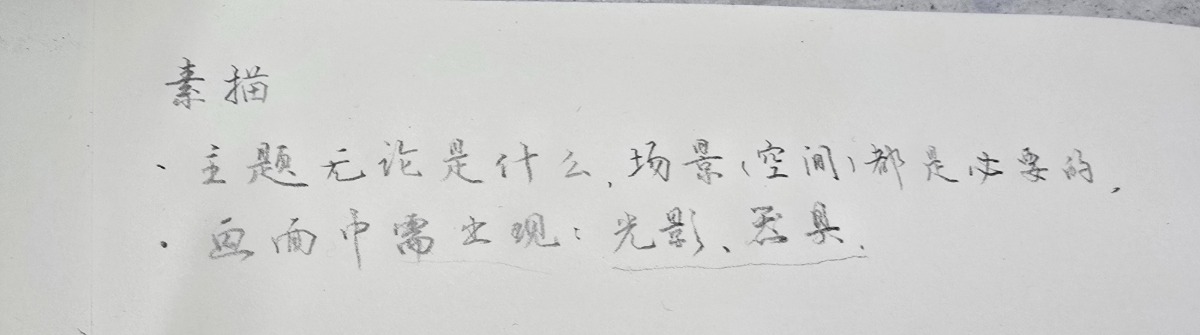 素描
、主题无论是什么,场景(空间)都是必要的,
· 画面中需出现：光影、器具.